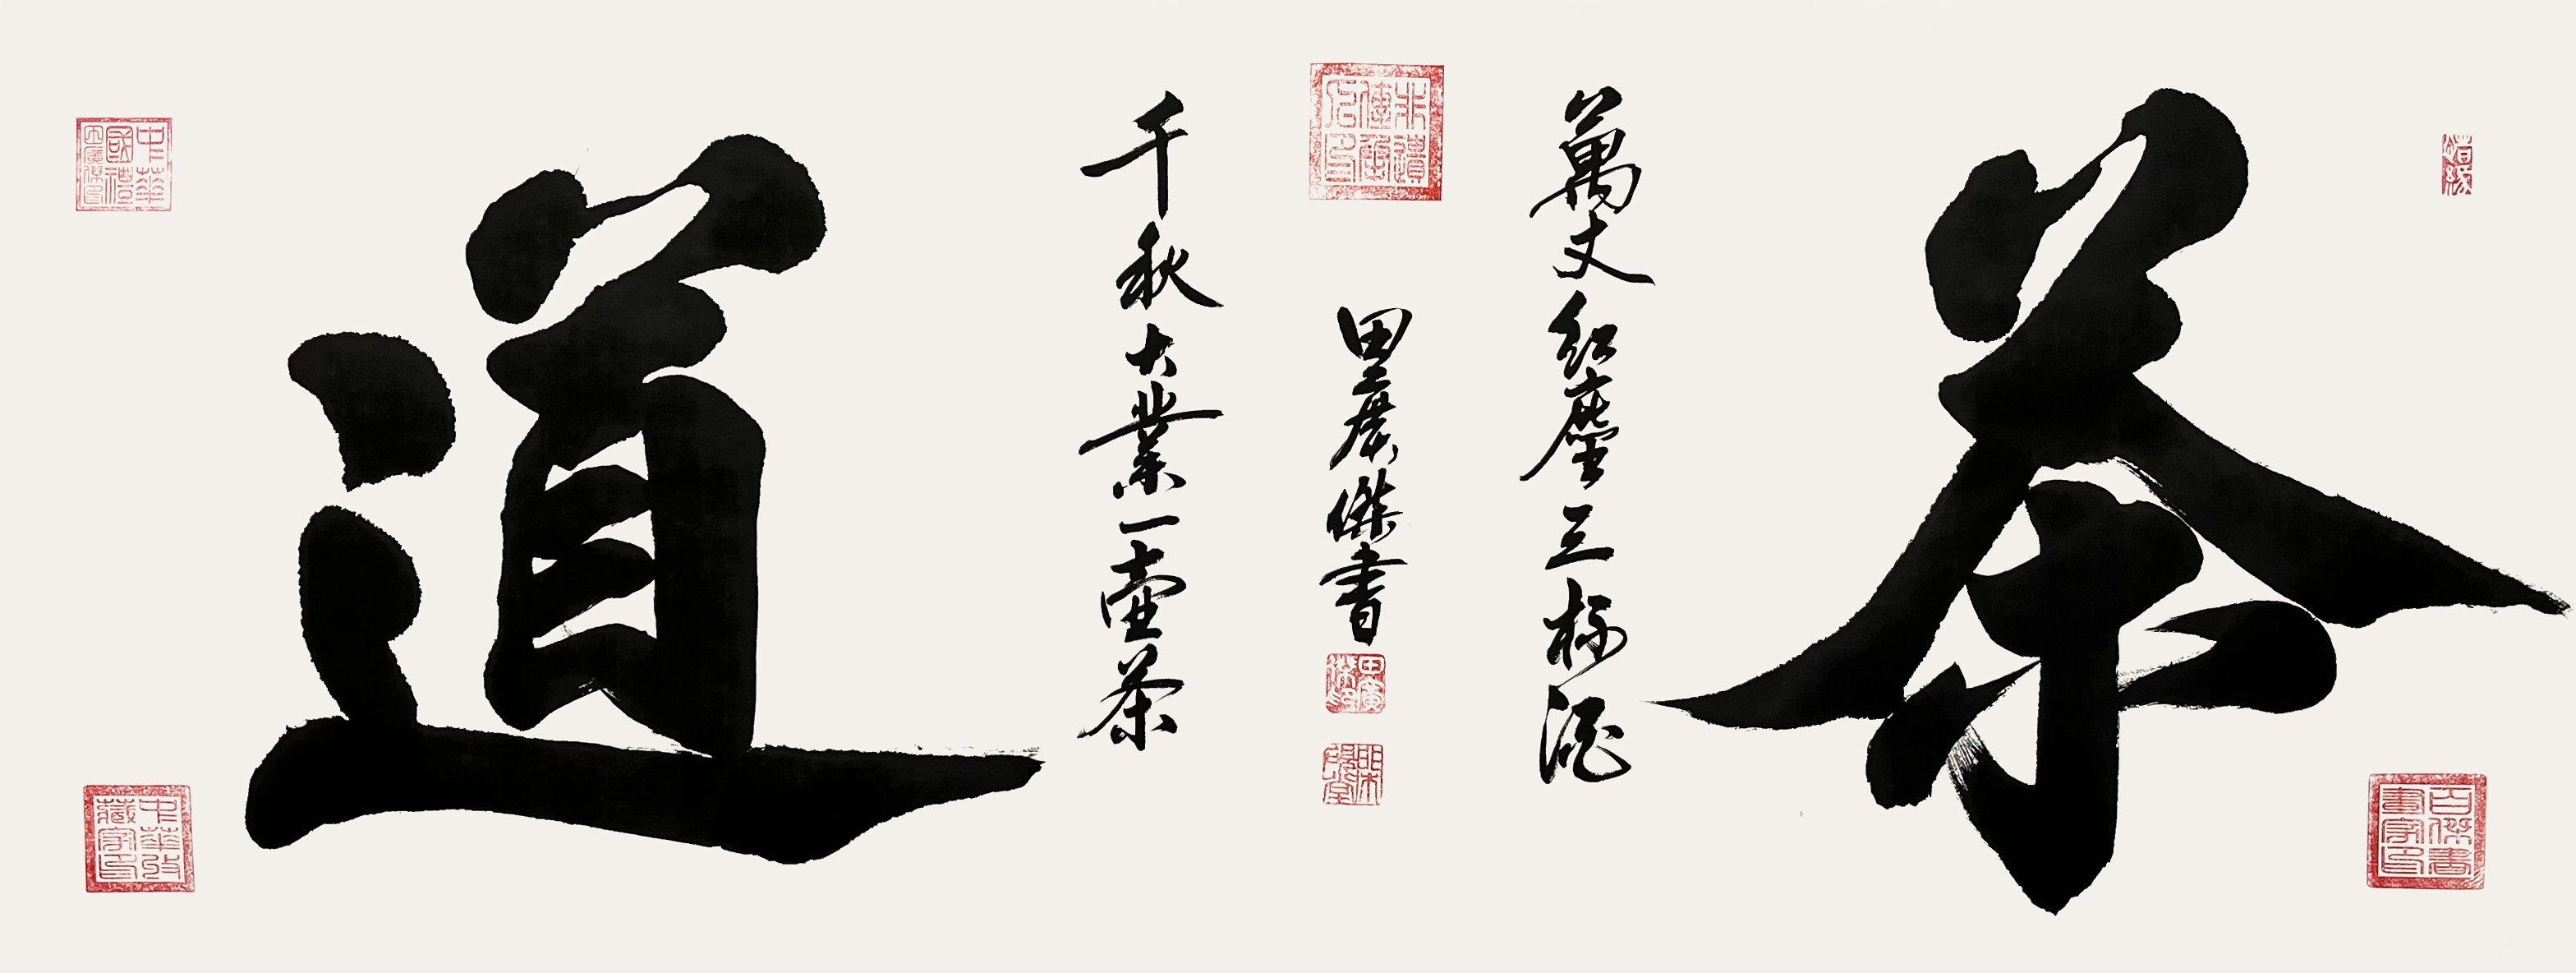 茶
萬丈紅塵三杯酒
田廣傑書
千秋大業一壺茶
道